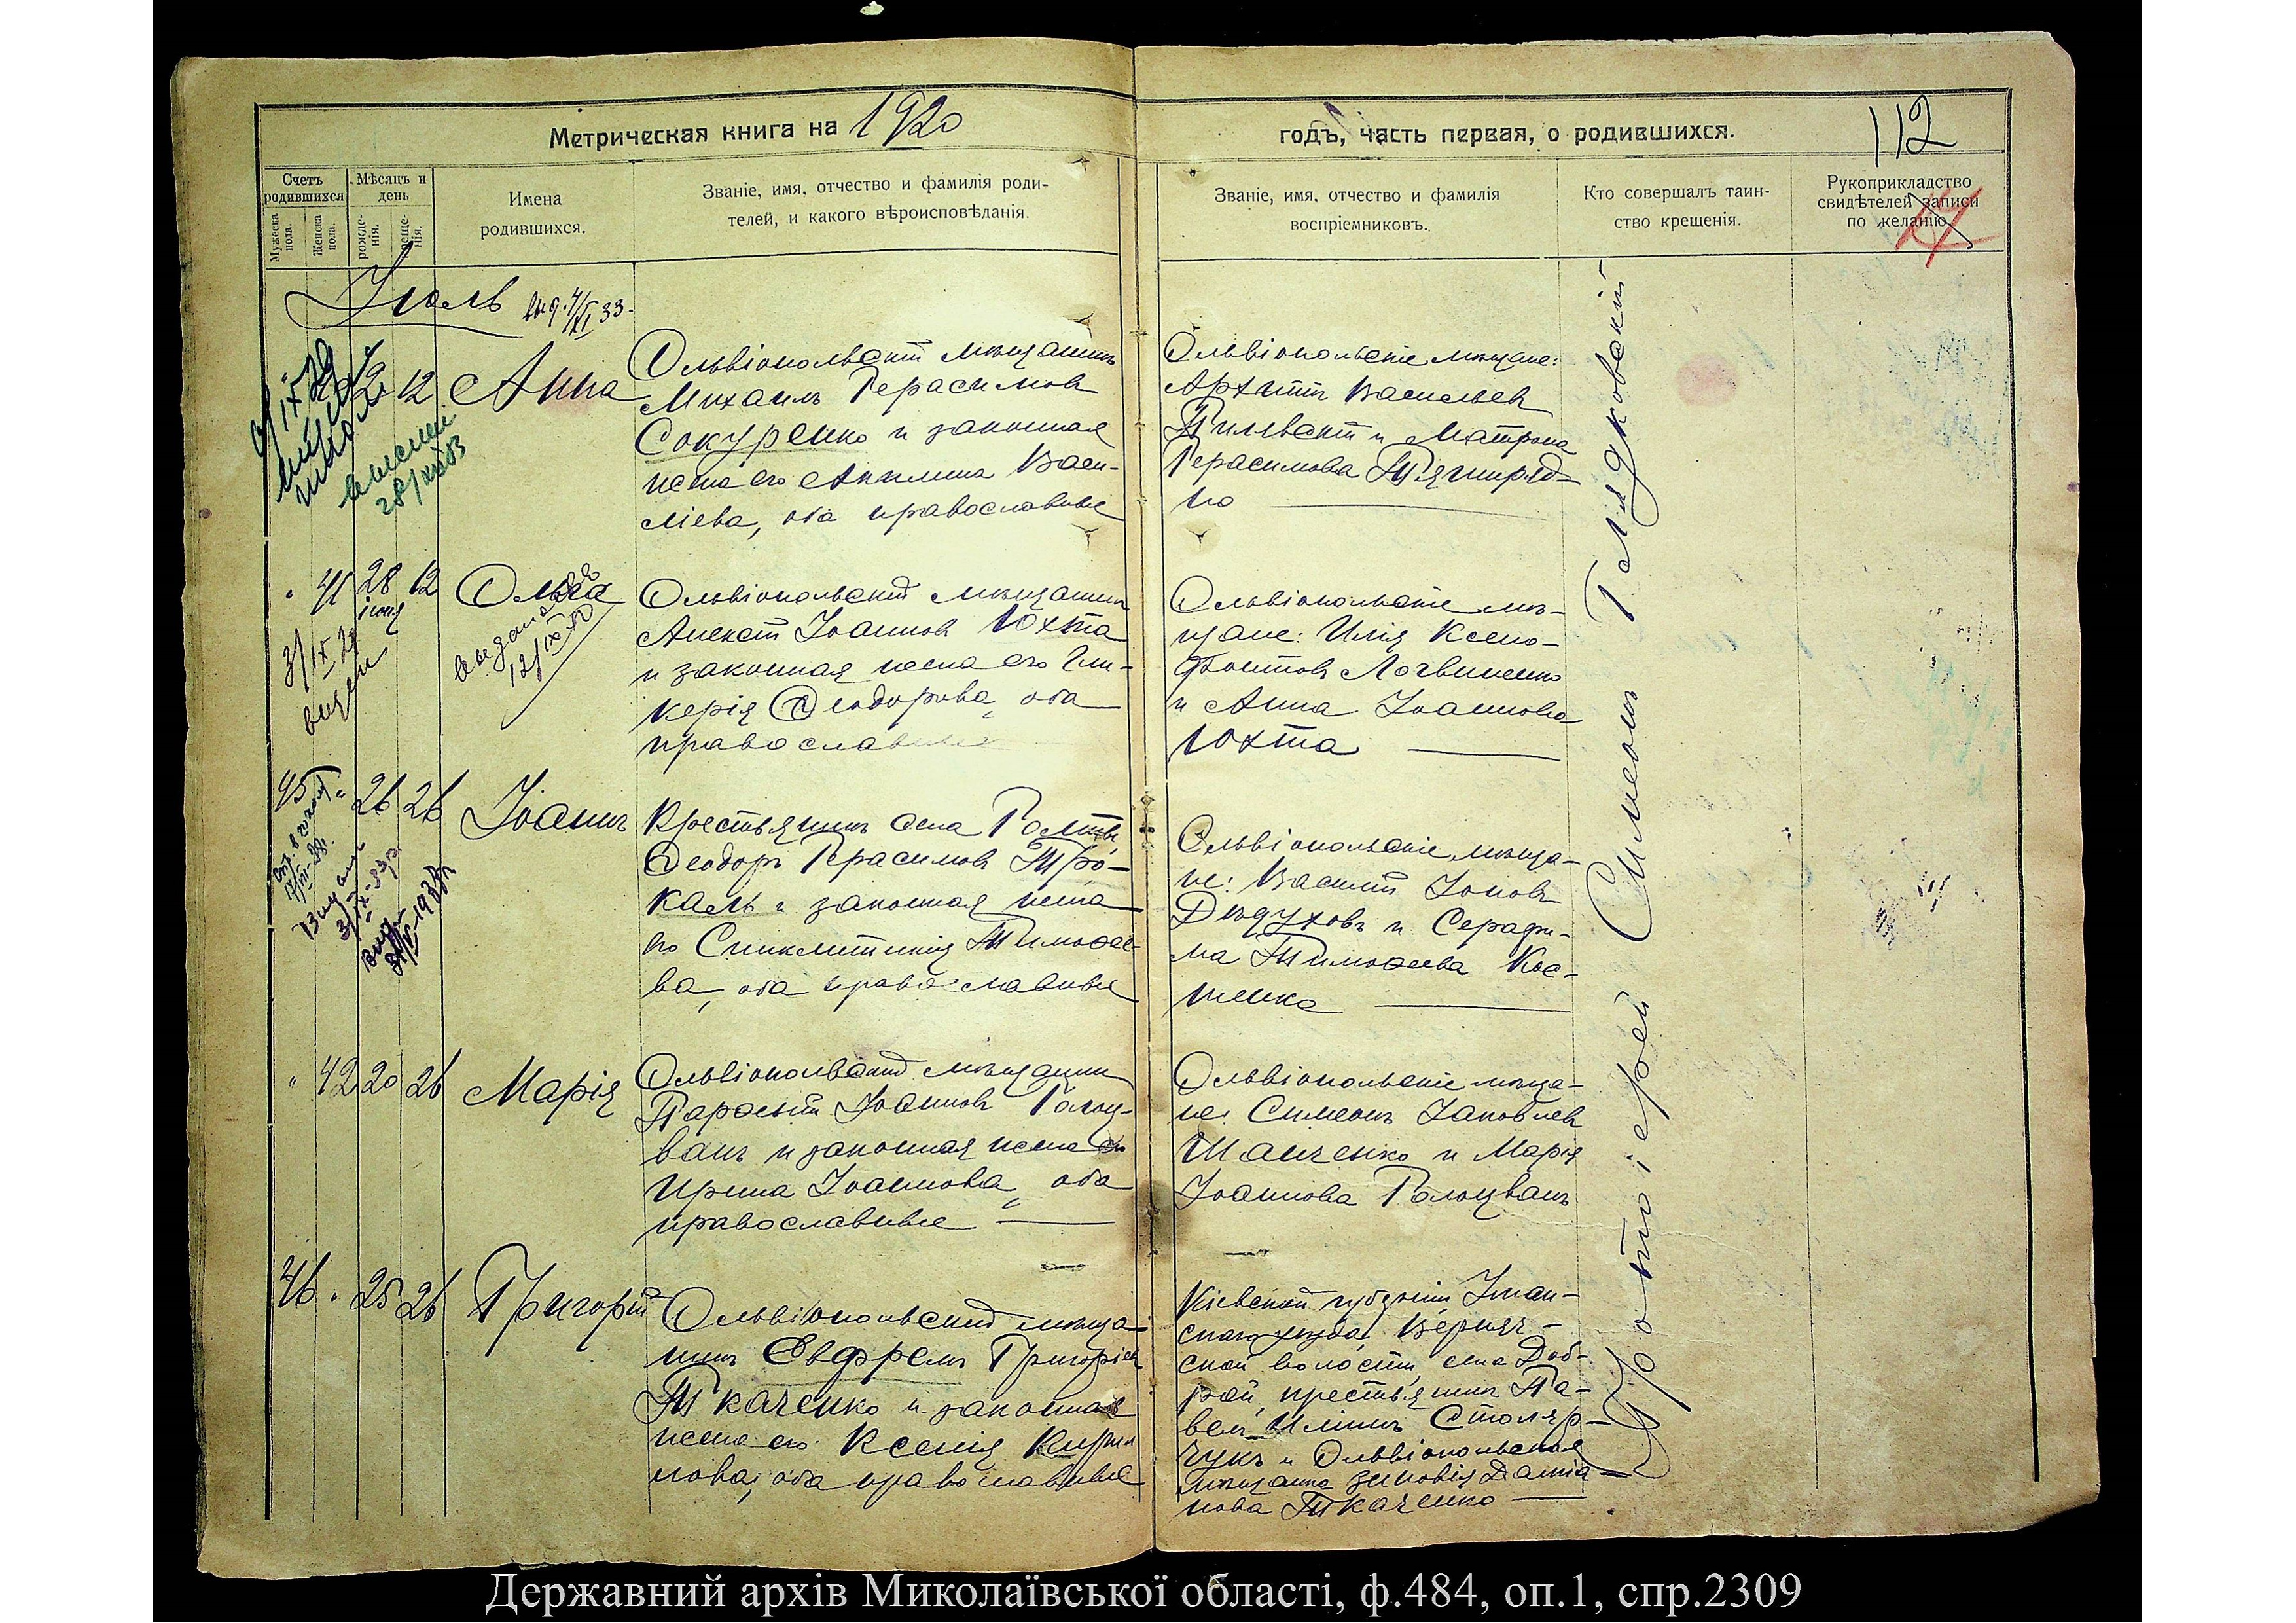 Метрическая книга на 1920
годъ, часть первая, о родившихся.
112
Счетъ родившихся
Мужеска пола.
Женска пола.
Мѣсяцъ и день
рожденія.
крещенія.
Имена
родившихся.
Званіе, имя, отчество и фамилія роди-
телей, и какого вѣроисповѣданія.
Званіе, имя, отчество и фамилія
воспріемниковъ.
Кто совершалъ таин-
ство крещенія.
Рукоприкладство
свидѣтелей записи
по желанію
Іюль
33
2 12 Анна
Ольвіопольскій мѣщанинъ
Михаилъ Герасимов
Сокуренко и законная
жена его Акилина Васи-
ліева, оба православные
Ольвіопольские мѣщане:
Архипъ Васильев
и Матрона
Герасимова
но
41 28 12 Ольга
іюня
выдано
12/IX
3/IX 29
Ольвіопольскій мѣщанинъ
Алексій Іоаннов Юхта
и законная жена его Гли-
керія Ѳеодорова, оба
православные
Ольвіопольскіе мѣ-
щане: Илія Ксено-
фонтов Логвиненко
и Анна Іоаннова
Юхта
45 " 26 26 Іоаннъ
Крестьянинъ села
Ѳеодоръ Герасимов Тро-
каль и законная жена
его Синклитикія Тимоѳее-
ва, оба православные
Ольвіопольскіе мѣща-
не: Василій Іонов
Дѣдухов и Серафи-
ма Тимоѳеева Кос-
тенко
" 42 20 26 Марія
Ольвіопольскій мѣщанин
Парѳеній Іоаннов Голоц-
ванъ и законная жена его
Ирина Іоаннова, оба
православные
Ольвіопольскіе мѣща-
не: Симеонъ Іаковлев
Шанченко и Марія
Іоаннова Голоцванъ
46 " 25 26 Григорій
Ольвіопольскій мѣща-
нинъ Евфремъ Григоріев
Ткаченко и законная
жена его Ксенія Кирил
лова, оба православные
Кіевской губерніи Уман-
скаго уѣзда, Верняч-
ской волости, села Доб-
рой, крестьянин Па-
вел Иліинъ Столяр-
чукъ и Ольвіопольская
мѣщанка Зиновія Даміа-
нова Ткаченко
Протоіерей Симеонъ Гладковскій
Державний архів Миколаївської області, ф.484, оп.1, спр.2309